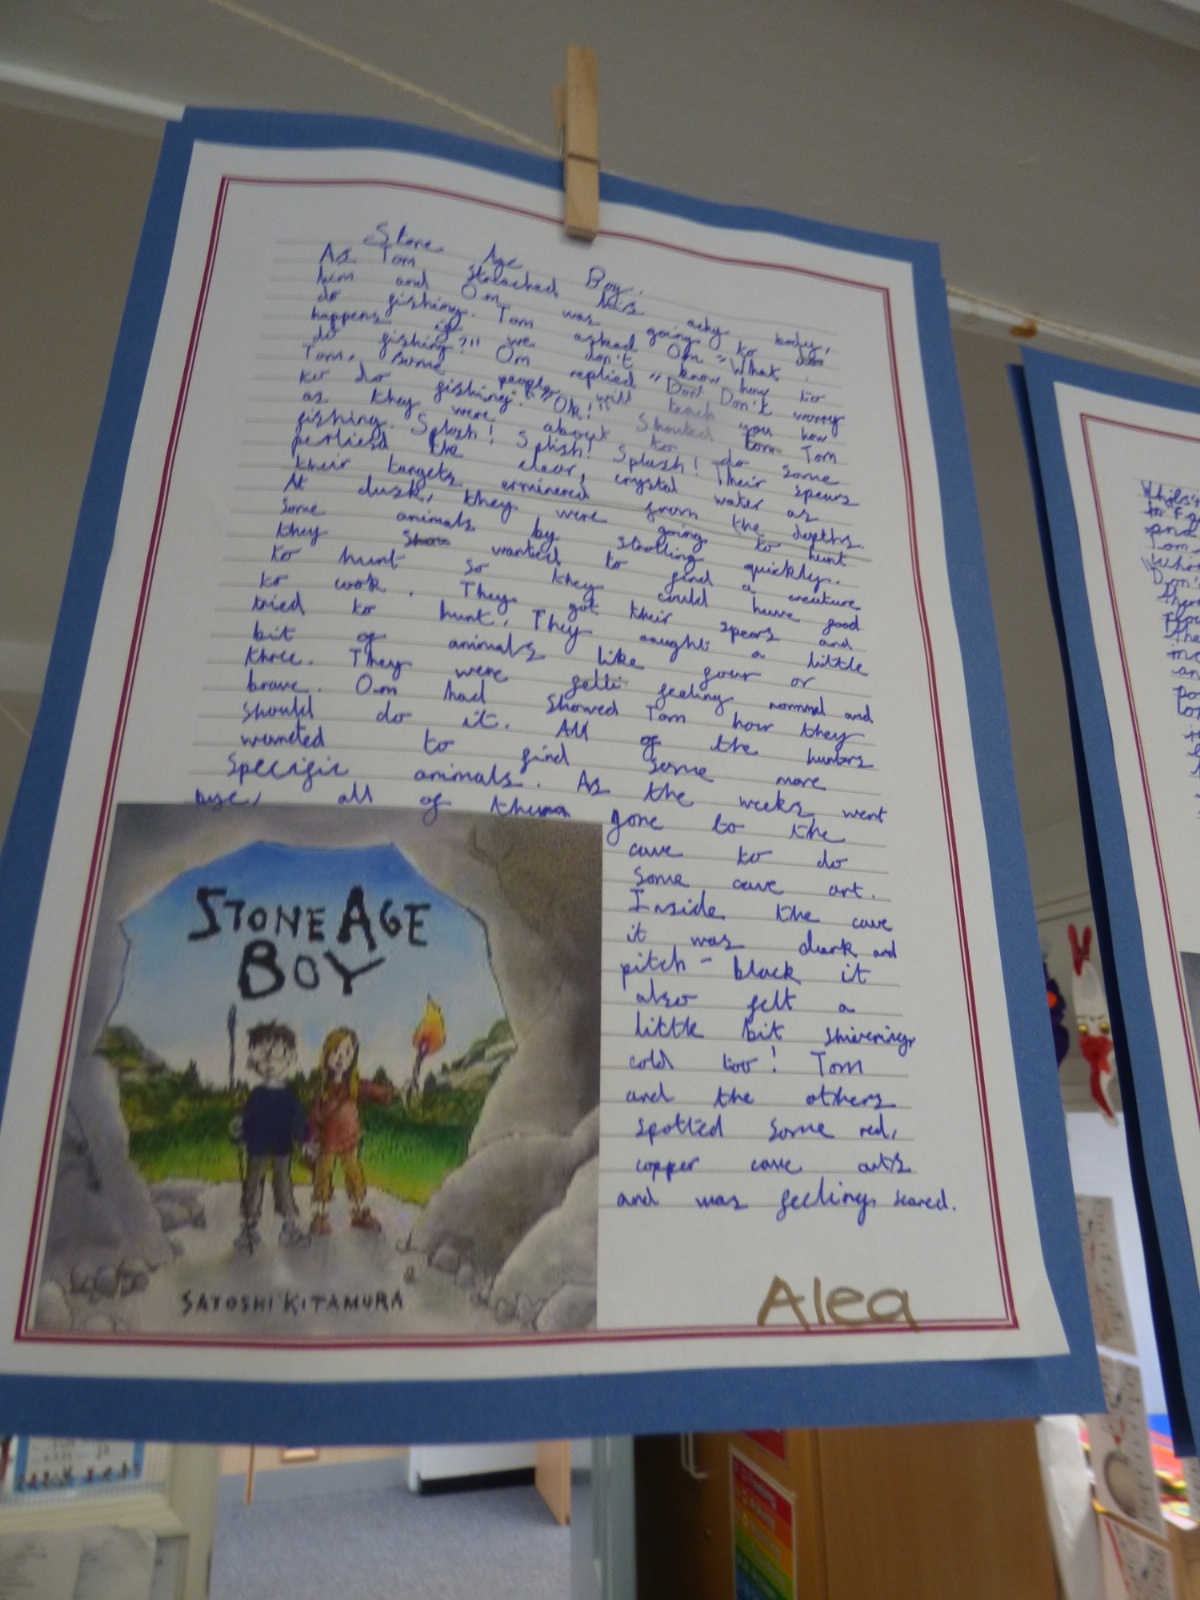 Stone Age Boy.
As Tom strached his achy body,
him and Om was going to
do fishing. Tom asked Om "What
happens if we don't know how to
do fishing?" Om replied "Don't Don't worry
Tom, some people will teach you how
to do fishing." "Ok!" Shouted Tom
as they were about to do some
fishing. Splosh! Splish! Splash! Their spears
the clear, crystal water as
their targets from the depths.
At dusk, they were going to hunt
some animals by strolling quickly.
they wanted to find a creature
to hunt so they could have good
to cook. They got their spears and
tried to hunt. They caught a little
bit of animals like four or
three. They were feeling normal and
brave. Om had showed Tom how they
should do it. All of the hunters
wanted to find some more
specific animals. As the weeks went
bye, all of them gone to the
cave to do
some cave art.
Inside the cave
it was dark and
pitch-black it
also felt a
little bit shivering
cold too! Tom
and the others
spotted some red,
copper cave arts
and was feeling scared.
STONE AGE
BOY
SATOSHI KITAMURA
Alea